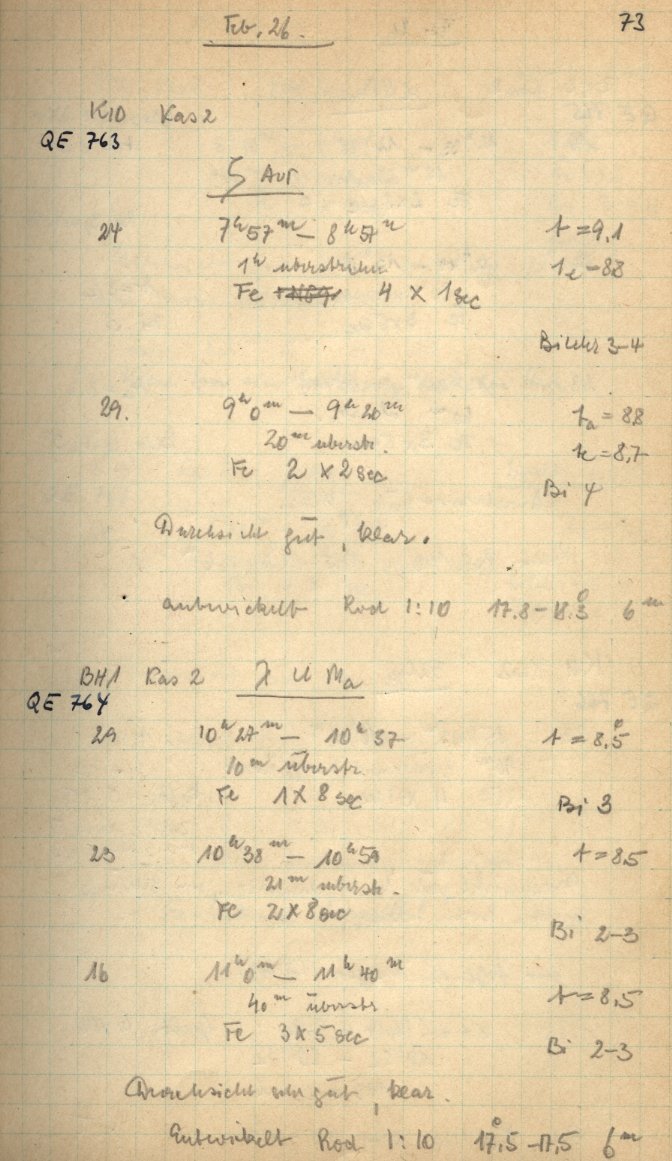 Feb. 26. 73
K10 Kas 2
QE 763
ζ Aur
24 7h57m – 8h57m t = 9,1
1h überstrichen te = 8,8
Fe 4 × 1 sec
Bilder 3-4
29. 9h0m – 9h20m ta = 8,8
20m überstr. te = 8,7
Fe 2 × 2 sec
Bi 4
Durchsicht gut, klar.
entwickelt Rod 1:10 17.8 – 18.3° 6m
BH1 Kas 2 λ U Ma
QE 764
29 10h27m – 10h37 t = 8,5°
10m überstr.
Fe 1 × 8 sec
Bi 3
23 10h38m – 10h59 t = 8,5
21m überstr.
Fe 2 × 8 sec
Bi 2-3
16 11h0m – 11h40m
40m überstr t = 8,5
Fe 3 × 5 sec
Bi 2-3
Durchsicht sehr gut, klar.
Entwickelt Rod 1:10 17,5° – 17,5 6m